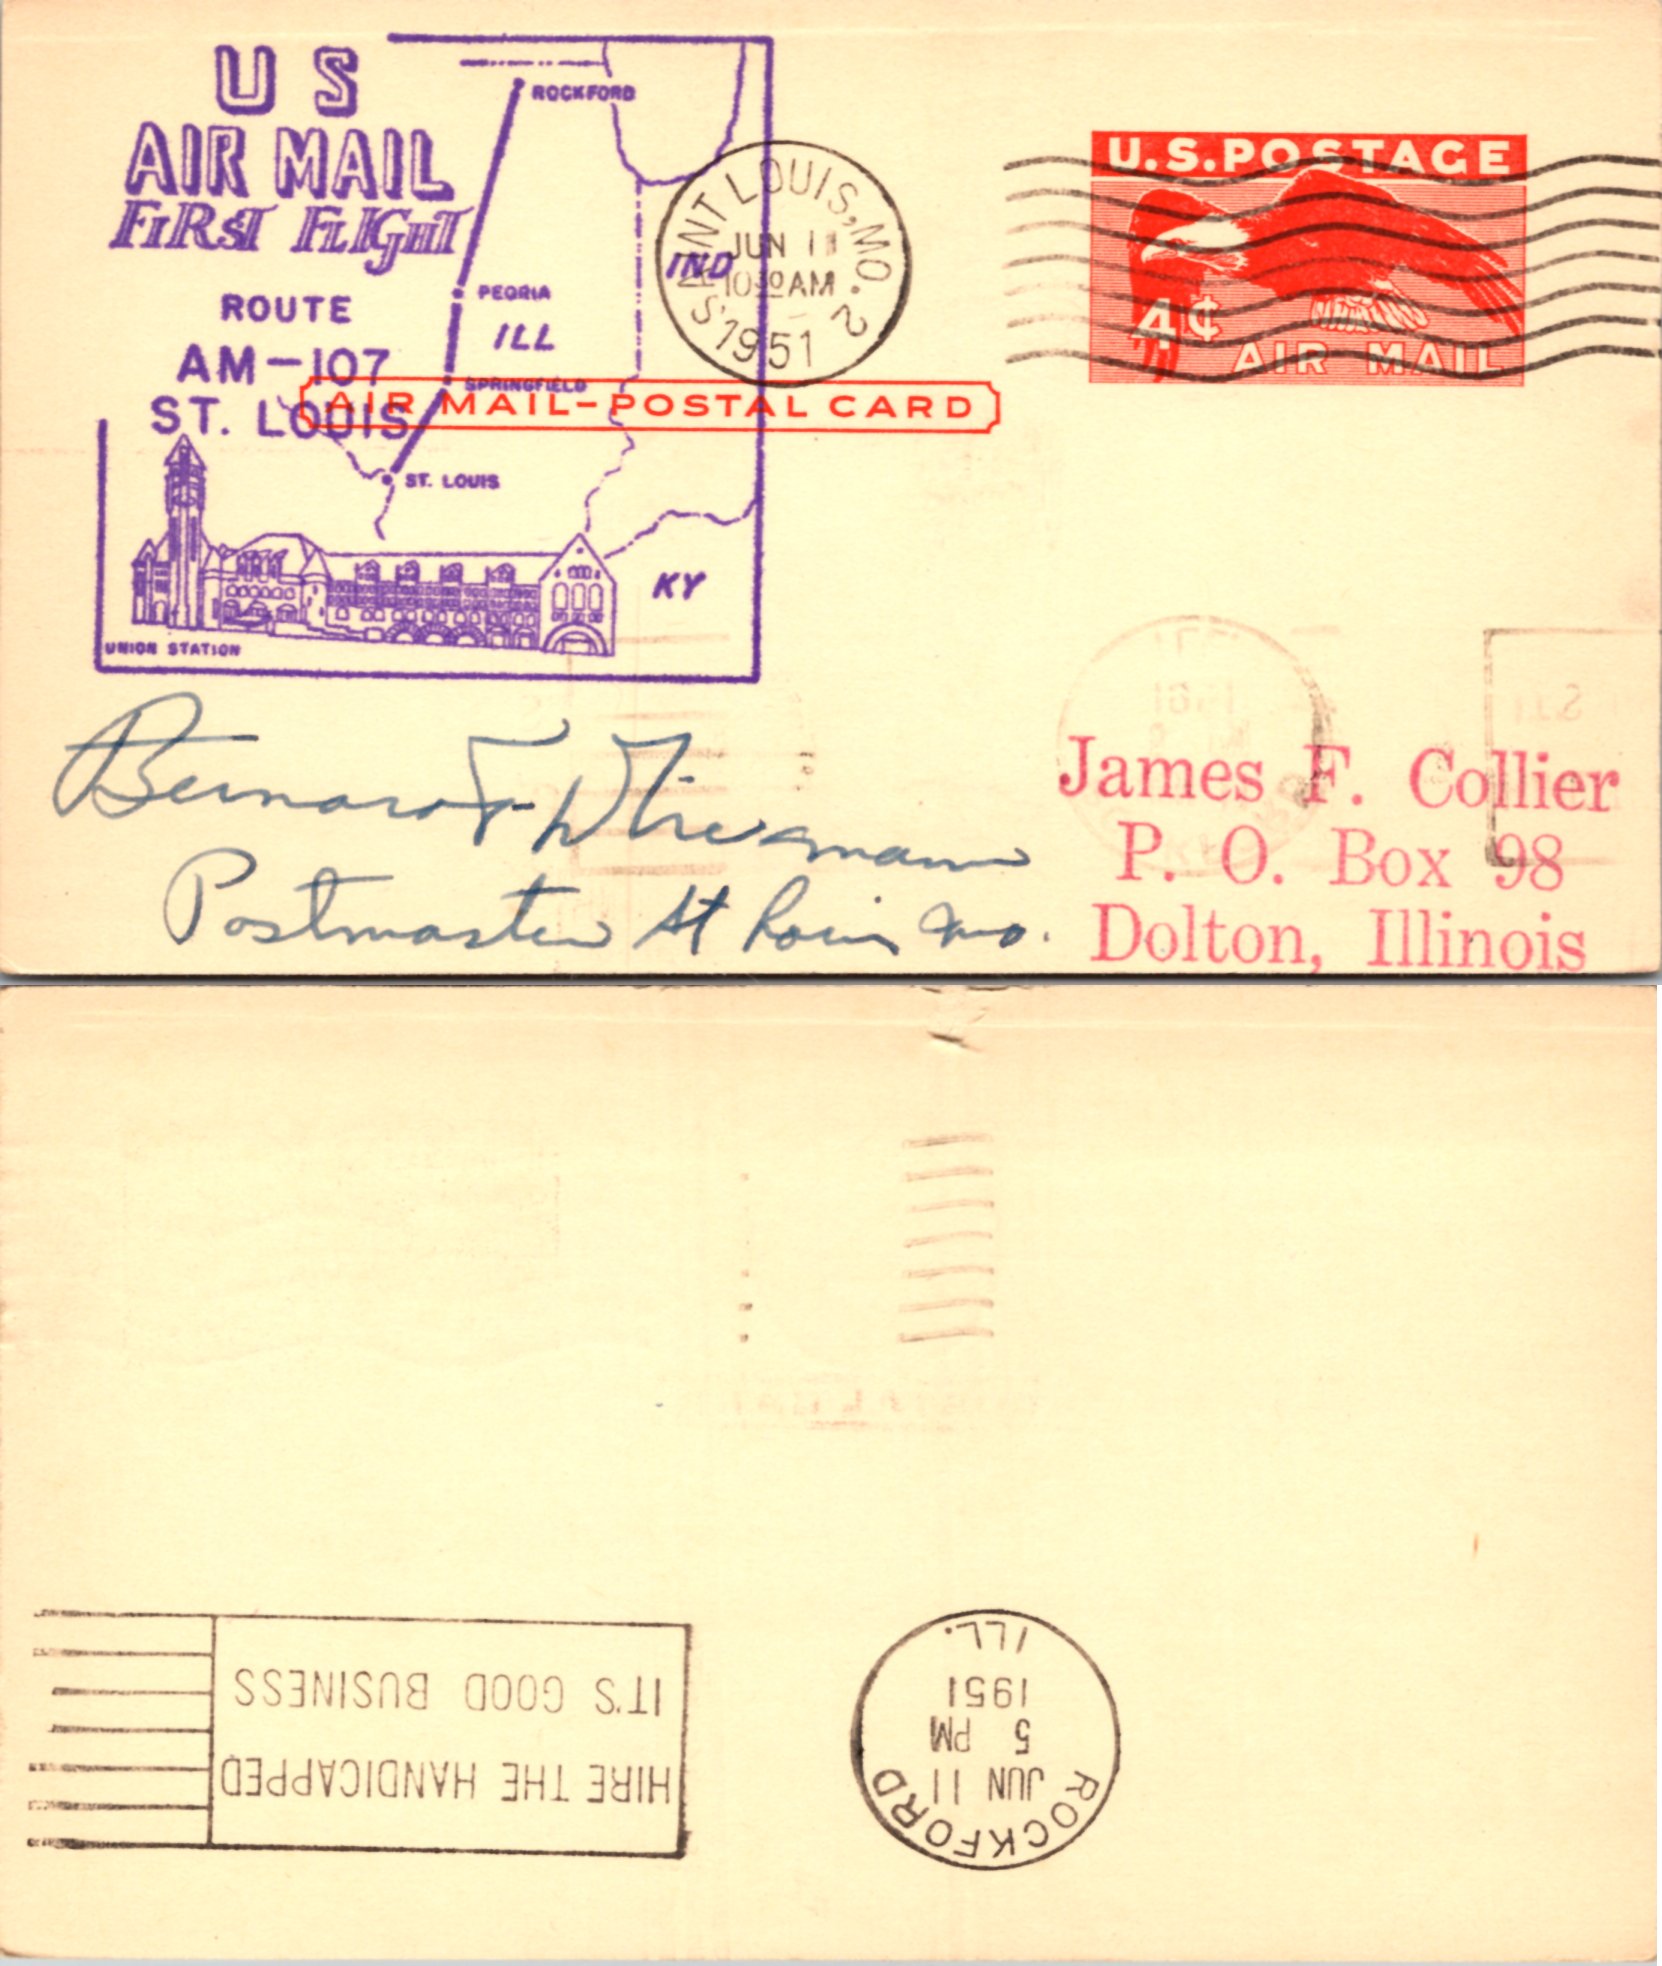 U S
AIR MAIL
FIRST FLIGHT
ROUTE
AM-107
ST. LOUIS
ROCKFORD
PEORIA
ILL
SPRINGFIELD
ST. LOUIS
IND
KY
UNION STATION
SAINT LOUIS, MO. 2
JUN 11
10 30 AM
1951
U.S. POSTAGE
4¢
AIR MAIL
AIR MAIL-POSTAL CARD
Bernard F.
Postmaster St Louis Mo.
James F. Collier
P. O. Box 98
Dolton, Illinois
HIRE THE HANDICAPPED
IT'S GOOD BUSINESS
ROCKFORD
JUN 11
5 PM
1951
ILL.